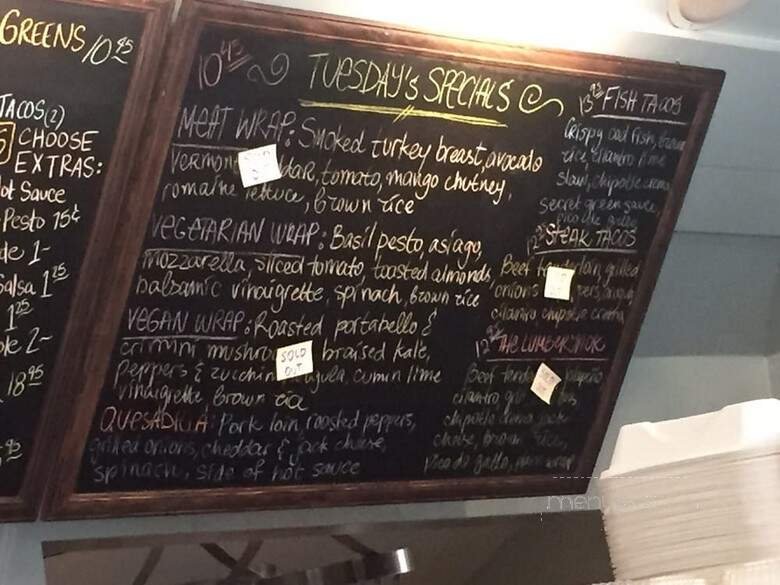 GREENS 10 95
TACOS (2)
CHOOSE
EXTRAS:
Hot Sauce
Pesto 75¢
1-
Salsa 1 25
1 25
2-
18 95
95
10 95 TUESDAY'S SPECIALS
MEAT WRAP: Smoked turkey breast, avocado
Vermont
tomato, mango chutney,
romaine lettuce, brown rice
VEGETARIAN WRAP: Basil pesto, asiago,
mozzarella, sliced tomato, toasted almonds
balsamic vinaigrette, spinach, brown rice
VEGAN WRAP: Roasted portabello &
crimini SOLD OUT braised kale,
peppers & cumin lime
vinaigrette brown
QUESADILLA: Pork loin roasted peppers,
grilled onions, cheddar & jack cheese,
spinach, side of hot sauce
13 95 FISH TACOS
Crispy cod fish, brown
rice cilantro lime
slaw, chipotle crema
secret green sauce,
pico de gallo
STEAK TACOS
Beef tenderloin grilled
onions
cilantro chipotle crema
THE LUMBERJACK
Beef jalapeño
cilantro
chipotle crema jack
cheese, brown rice,
pico de gallo,